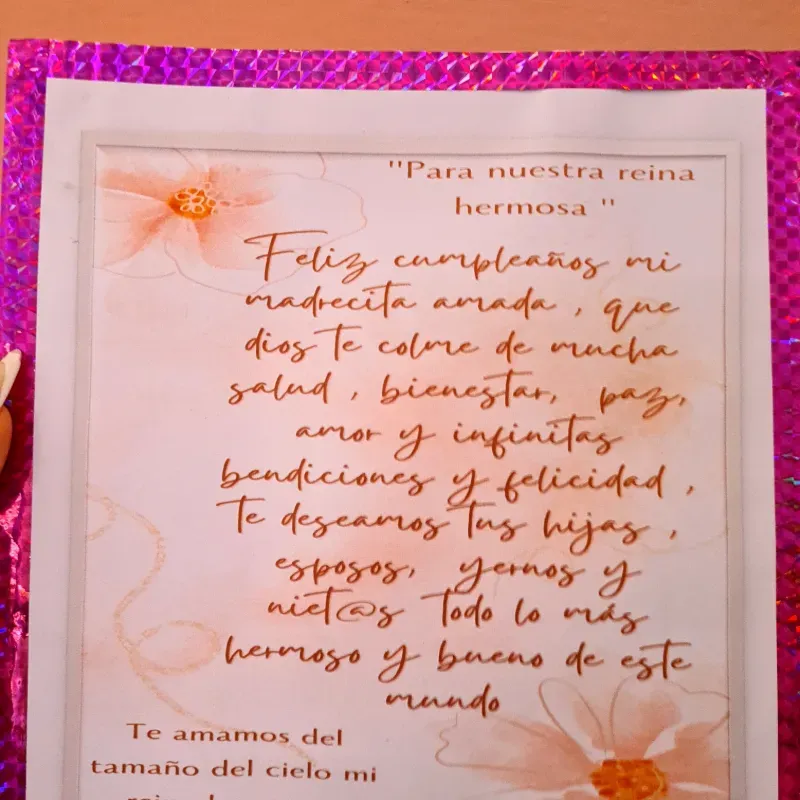 "Para nuestra reina
hermosa "
Feliz cumpleaños mi
madrecita amada , que
dios te colme de mucha
salud , bienestar, paz,
amor y infinitas
bendiciones y felicidad ,
Te deseamos tus hijas ,
esposos, yernos y
niet@s todo lo más
hermoso y bueno de este
mundo
Te amamos del
tamaño del cielo mi